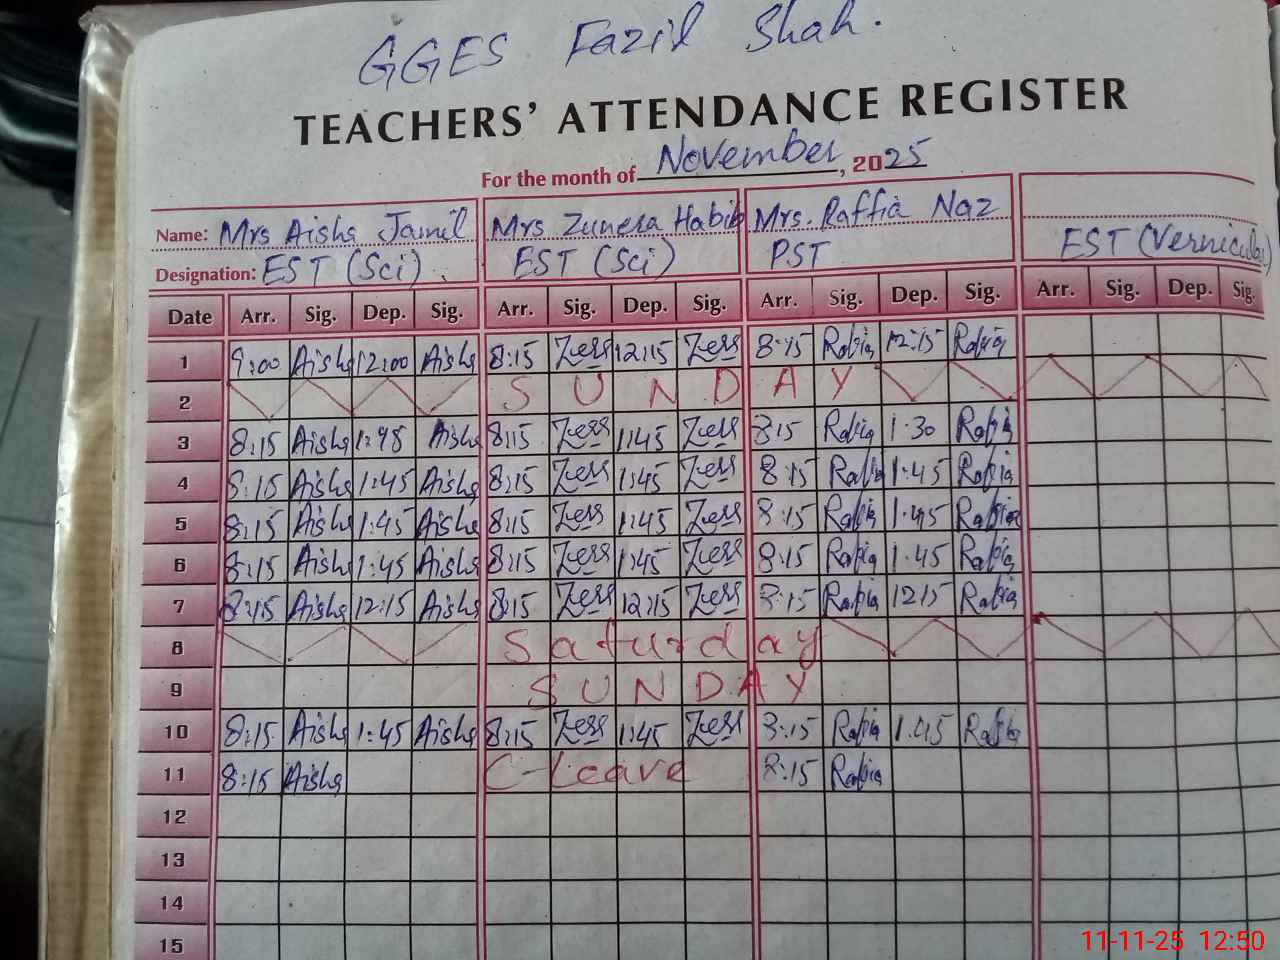 GGES Fazil Shah.
TEACHERS' ATTENDANCE REGISTER
For the month of November, 2025
Name: Mrs Aisha Jamil Mrs Zunera Habib Mrs. Raffia Naz
Designation: EST (Sci) EST (Sci) PST EST (Vernicular)
Date Arr. Sig. Dep. Sig. Arr. Sig. Dep. Sig. Arr. Sig. Dep. Sig. Arr. Sig. Dep. Sig.
1 9:00 Aisha 12:00 Aisha 8:15 12:15 8:15 Rafia 12:15 Rafia
2 SUNDAY
3 8:15 Aisha 1:45 Aisha 8:15 1:45 8:15 Rafia 1:30 Rafia
4 8:15 Aisha 1:45 Aisha 8:15 1:45 8:15 Rafia 1:45 Rafia
5 8:15 Aisha 1:45 Aisha 8:15 1:45 8:15 Rafia 1:45 Rafia
6 8:15 Aisha 1:45 Aisha 8:15 1:45 8:15 Rafia 1:45 Rafia
7 8:15 Aisha 12:15 Aisha 8:15 12:15 8:15 Rafia 12:15 Rafia
8 Saturday
9 SUNDAY
10 8:15 Aisha 1:45 Aisha 8:15 1:45 8:15 Rafia 1:45 Rafia
11 8:15 Aisha C-Leave 8:15 Rafia
12
13
14
15
11-11-25 12:50